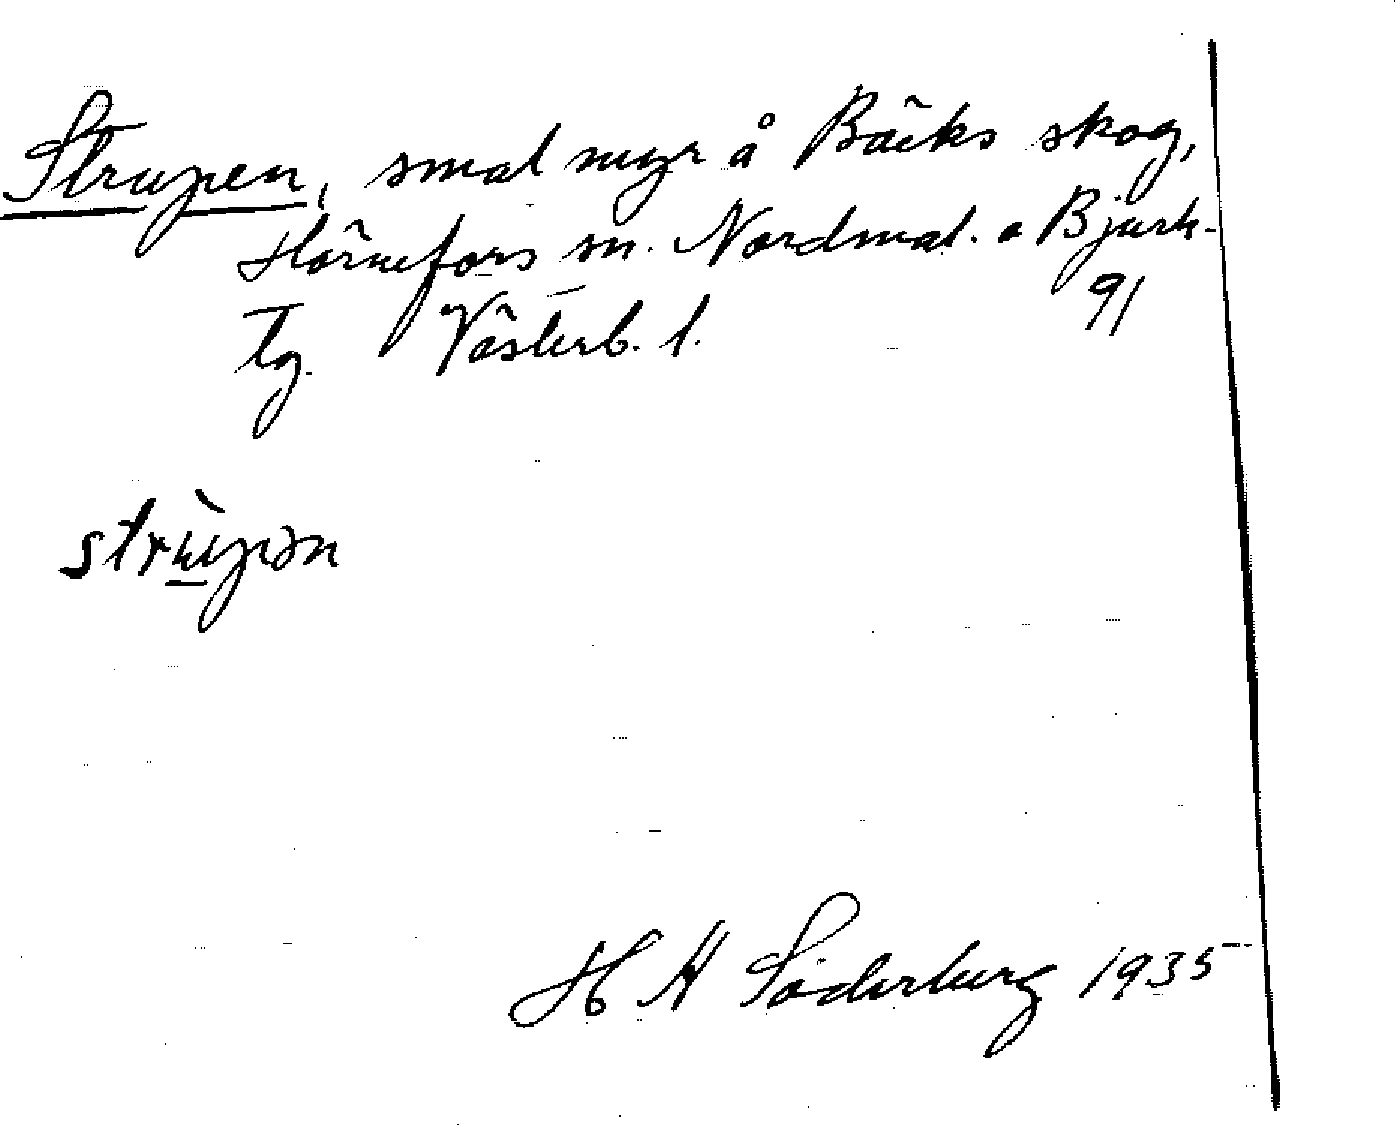 Strupen, smal myr å Bäcks skog,
Hörnefors sn. Nordmal. o Bjurh.
tg. Västerb. l. 91
strùpən
H H Söderberg 1935